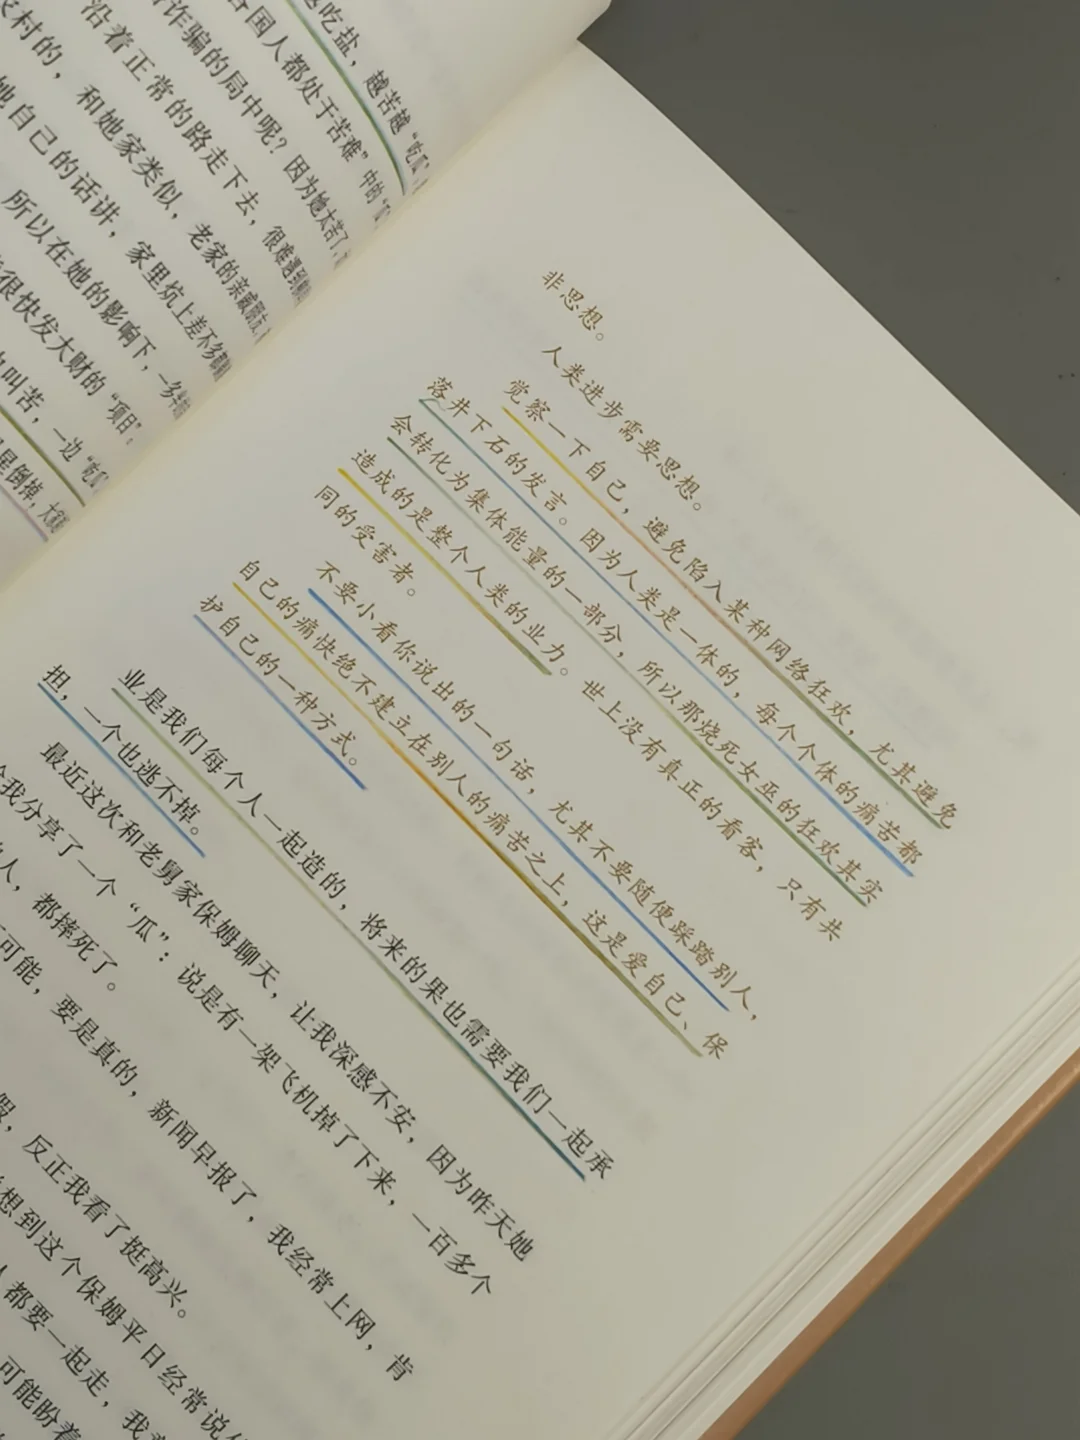 越吃盐，越苦越“吃瓜”
国人都处于苦难”中的
诈骗的局中呢？因为她太苦了，
沿着正常的路走下去，很难遇到
村的，和她家类似，老家的亲戚朋友，
她自己的话讲，家里炕上差不多都
所以在她的影响下，一多半
很快发大财的“项目”。
叫苦，一边“吃瓜”
是倒掉，大
非思想。
人类进步需要思想。
觉察一下自己，避免陷入某种网络狂欢，尤其避免
落井下石的发言。因为人类是一体的，每个个体的痛苦都
会转化为集体能量的一部分，所以那烧死女巫的狂欢其实
造成的是整个人类的业力。世上没有真正的看客，只有共
同的受害者。
不要小看你说出的一句话，尤其不要随便踩踏别人，
自己的痛快绝不建立在别人的痛苦之上，这是爱自己、保
护自己的一种方式。
业是我们每个人一起造的，将来的果也需要我们一起承
担，一个也逃不掉。
最近这次和老舅家保姆聊天，让我深感不安，因为昨天她
给我分享了一个“瓜”：说是有一架飞机掉了下来，一百多个
人，都摔死了。
可能，要是真的，新闻早报了，我经常上网，肯
假，反正我看了挺高兴。
想到这个保姆平日经常说
人都要一起走，我
可能盼着